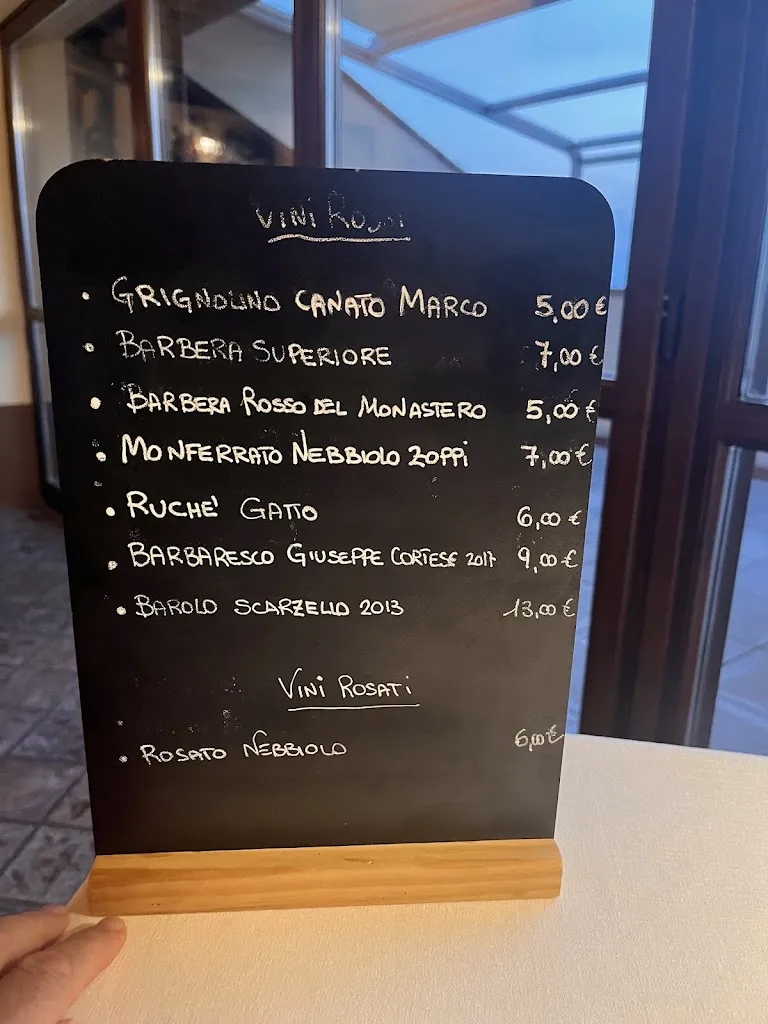 VINI ROSSI
• GRIGNOLINO CANATO MARCO 5,00 €
• BARBERA SUPERIORE 7,00 €
• BARBERA ROSSO DEL MONASTERO 5,00 €
• MONFERRATO NEBBIOLO ZOPPI 7,00 €
• RUCHE' GATTO 6,00 €
• BARBARESCO GIUSEPPE CORTESE 2017 9,00 €
• BAROLO SCARZELLO 2013 13,00 €
VINI ROSATI
• ROSATO NEBBIOLO 6,00 €